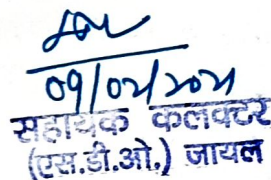 09/02/2021
सहायक कलक्टर
(एस.डी.ओ.) जायल